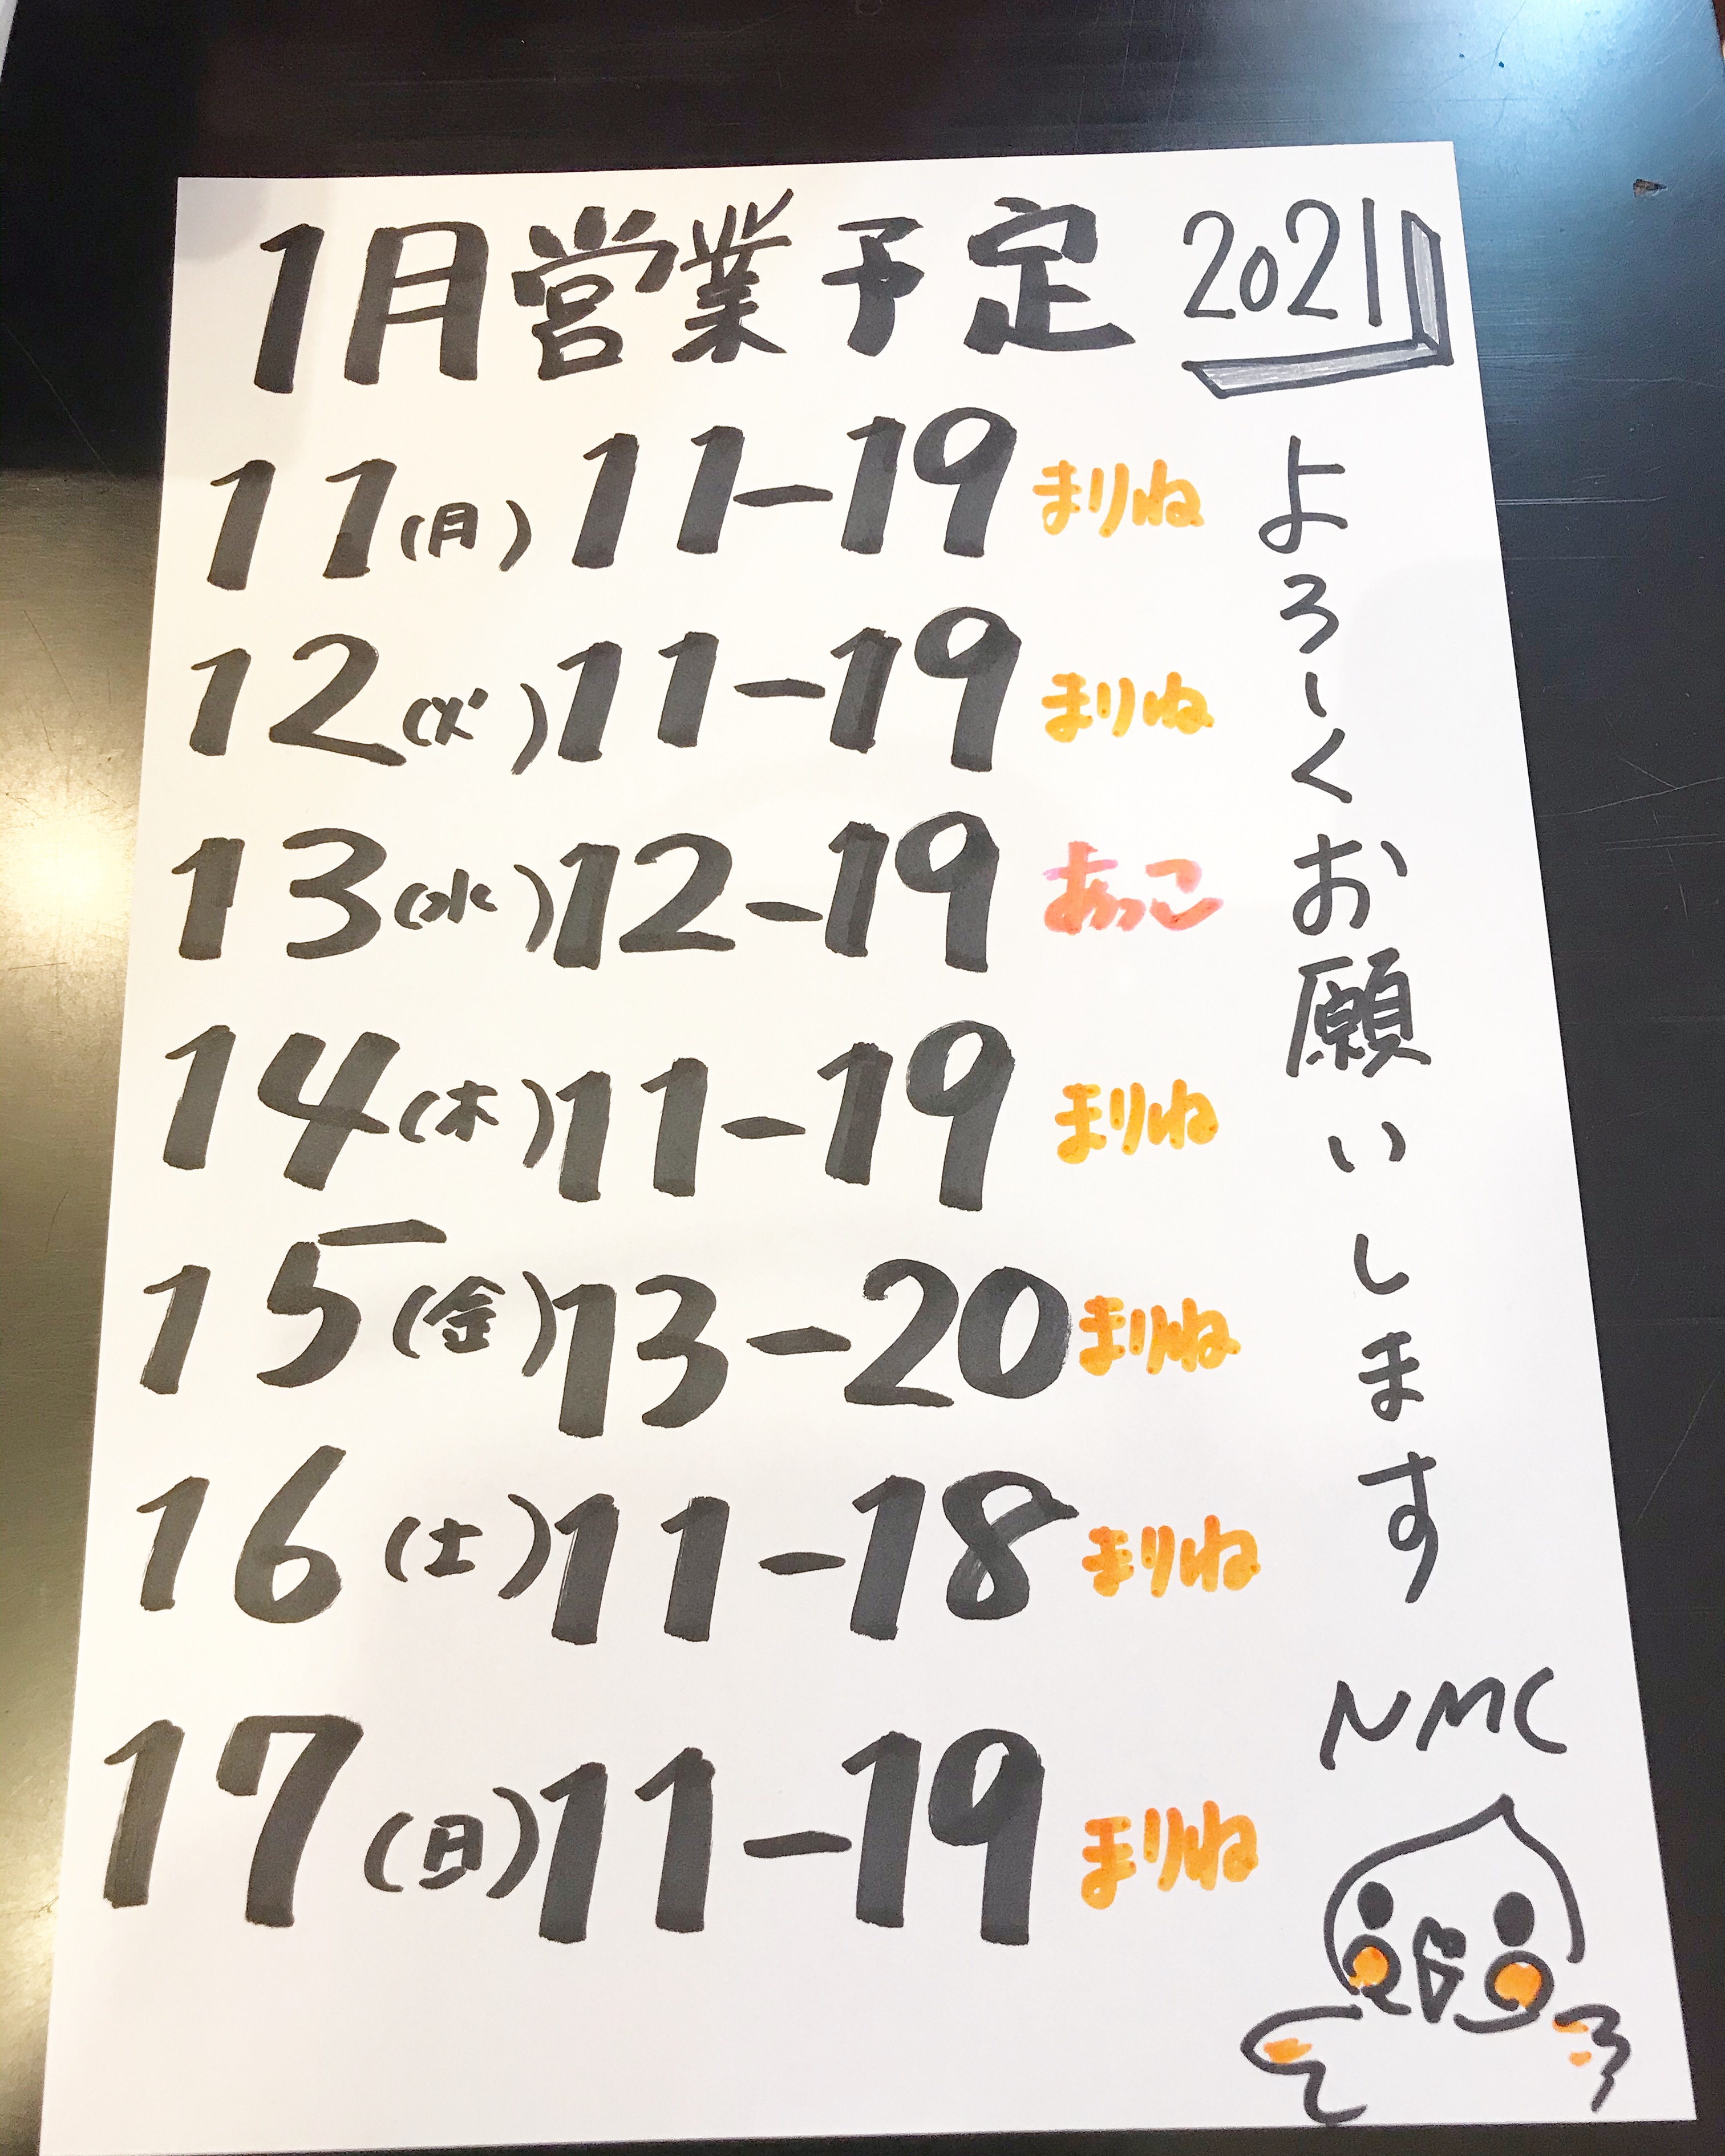 1月営業予定 2021
11(月) 11-19 まりね
12(火) 11-19 まりね
13(水) 12-19 あっこ
14(木) 11-19 まりね
15(金) 13-20 まりね
16(土) 11-18 まりね
17(日) 11-19 まりね
よろしくお願いします
NMC